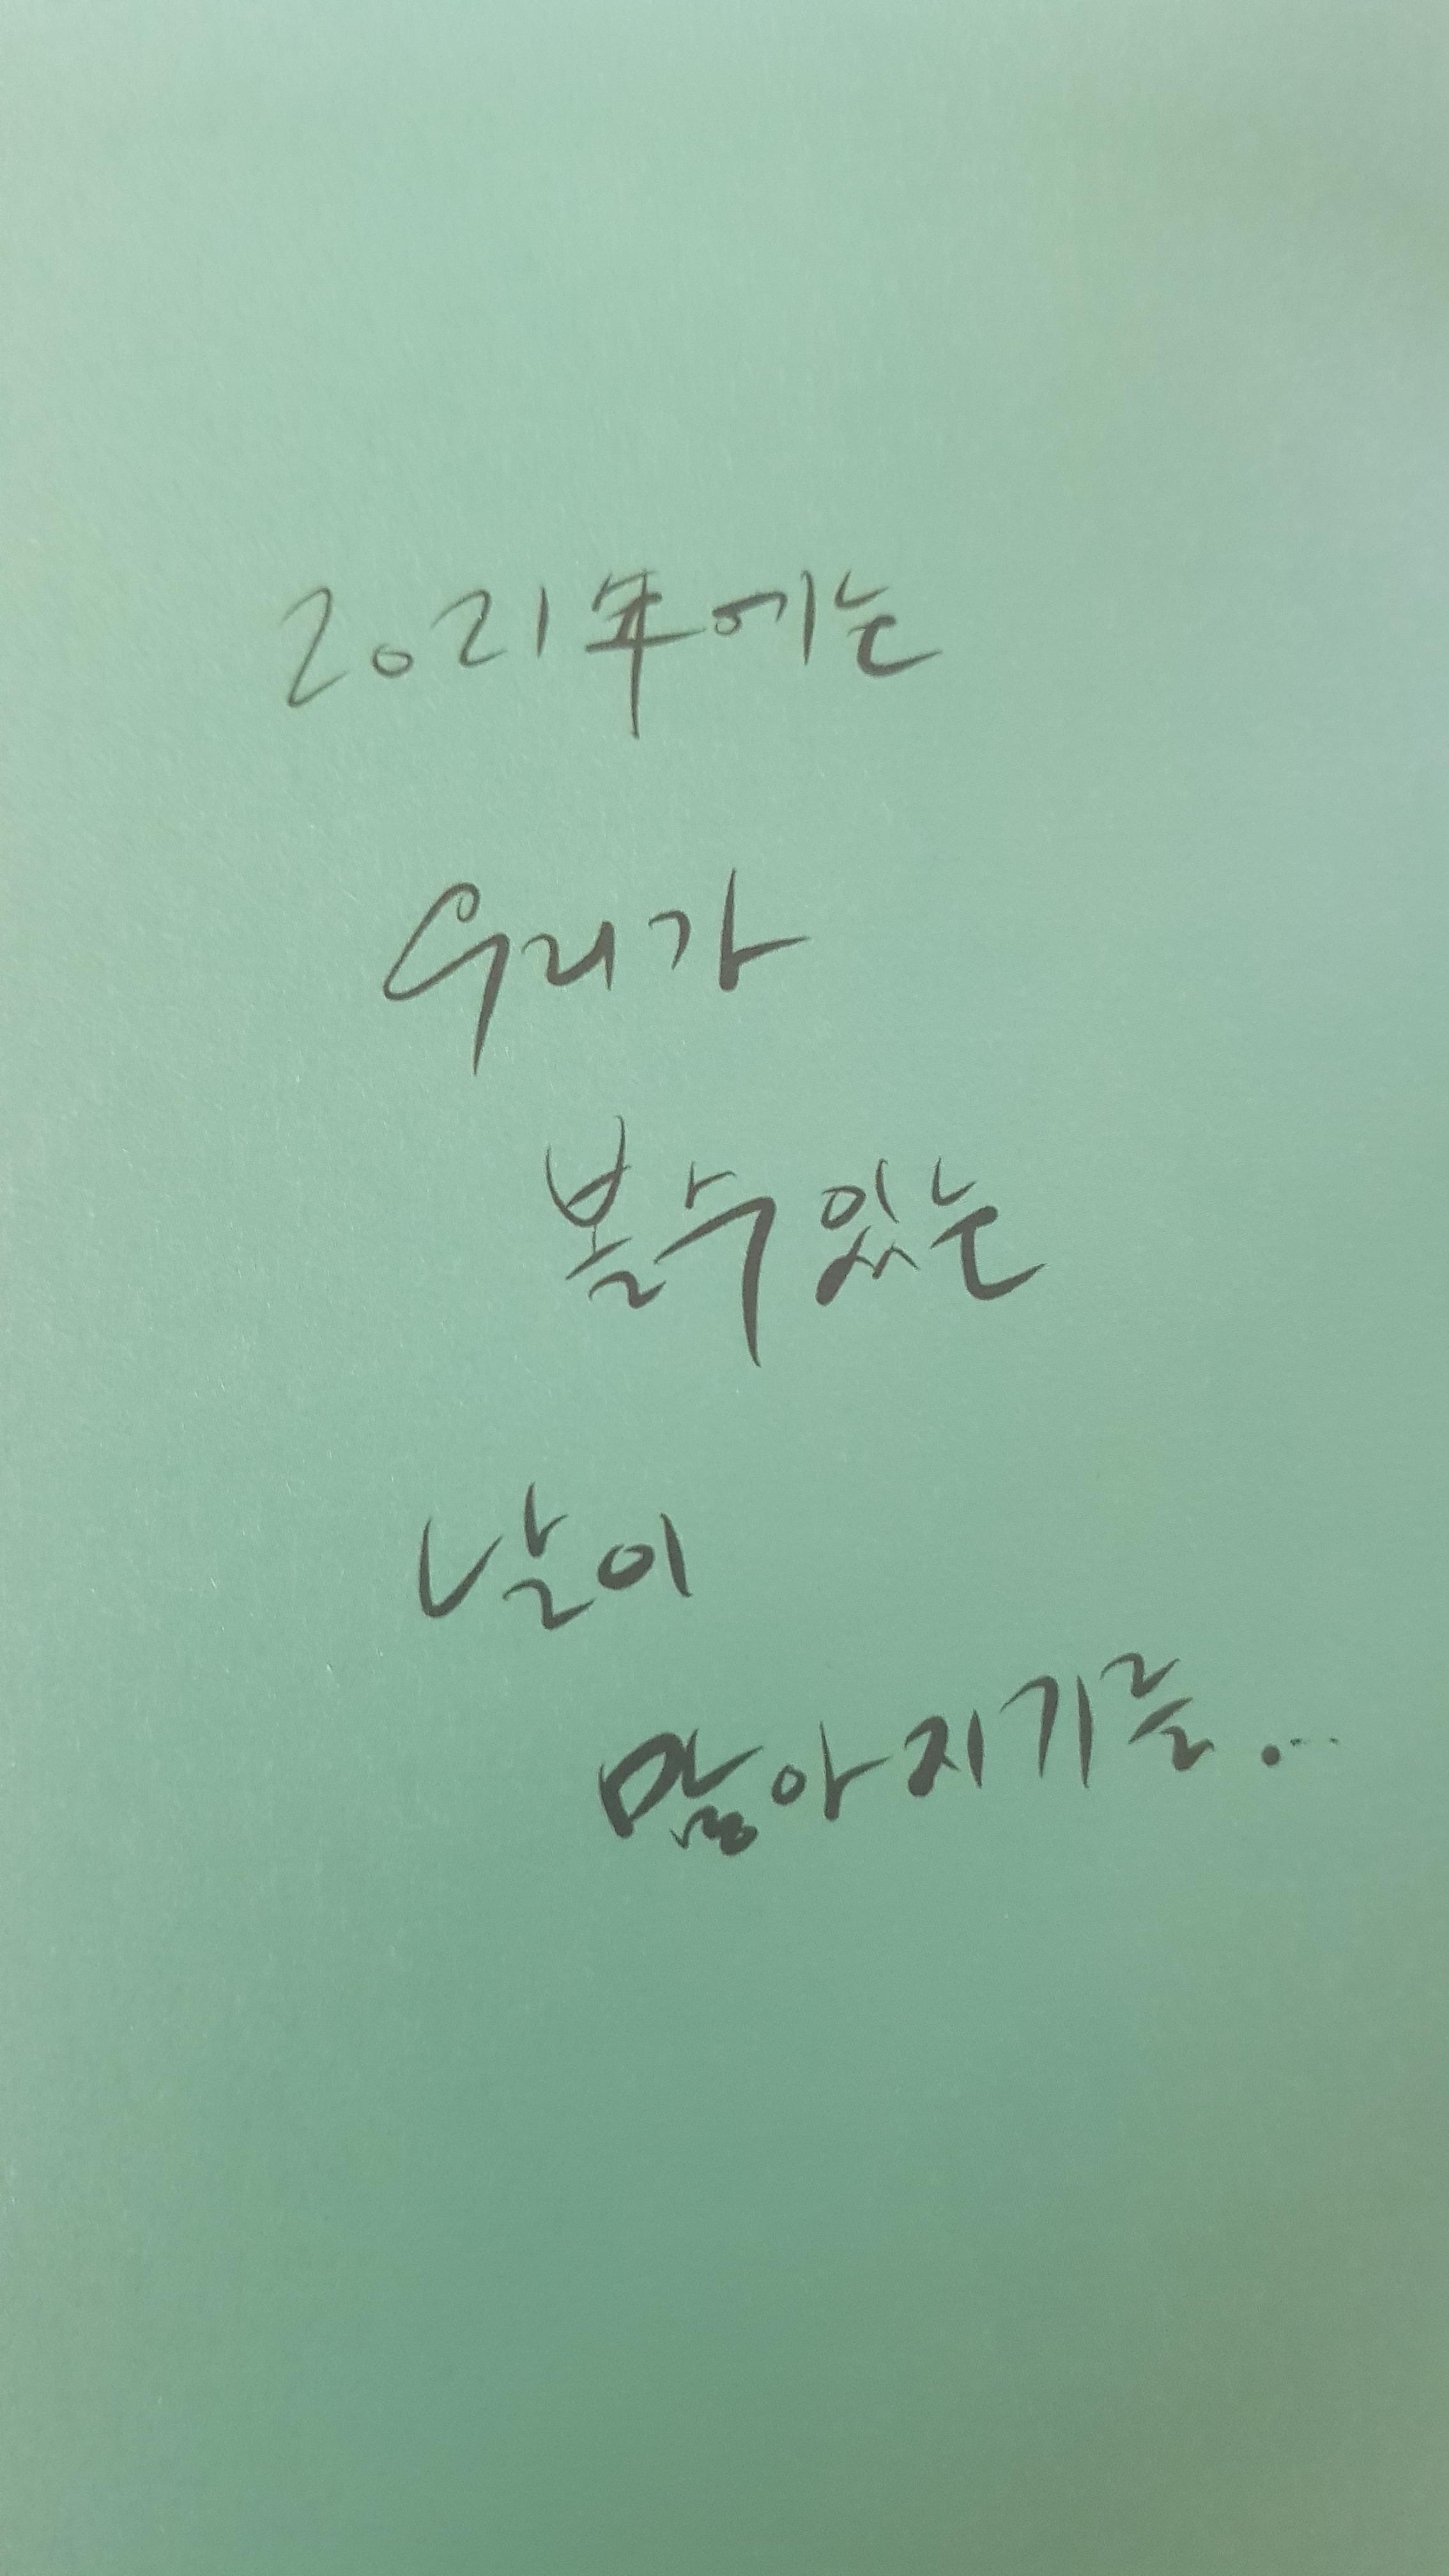 2021年에는
우리가
볼수있는
날이
많아지기를...